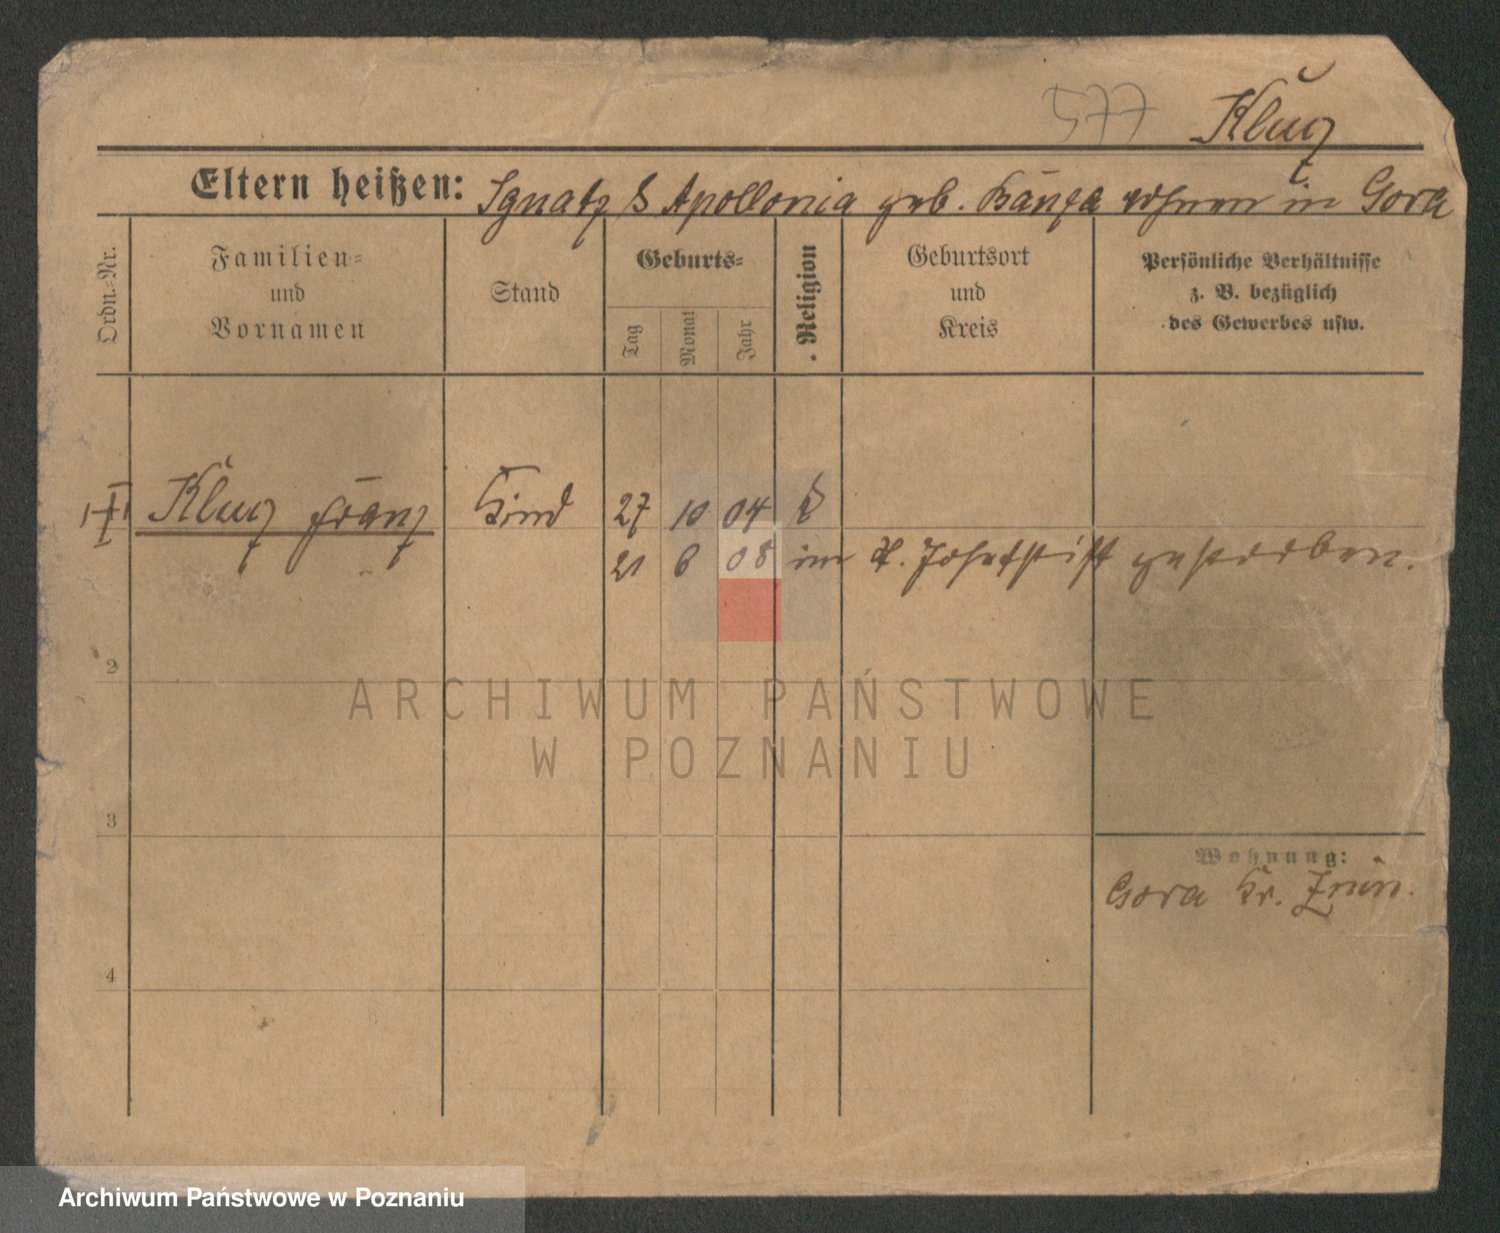 577 Klug
Eltern heißen: Ignatz & Apollonia geb. wohnen in Gora
Ordn.-Nr.
Familien-
und
Vornamen
Stand
Geburts-
Tag
Monat
Jahr
Religion
Geburtsort
und
Kreis
Persönliche Verhältnisse
z. B. bezüglich
des Gewerbes usw.
1 Klug Franz Kind 27 10 04 k
21 6 08 im St. Josefstift gestorben.
2
ARCHIWUM PAŃSTWOWE
W POZNANIU
3
Wohnung:
Gora Kr. Znin.
4
Archiwum Państwowe w Poznaniu